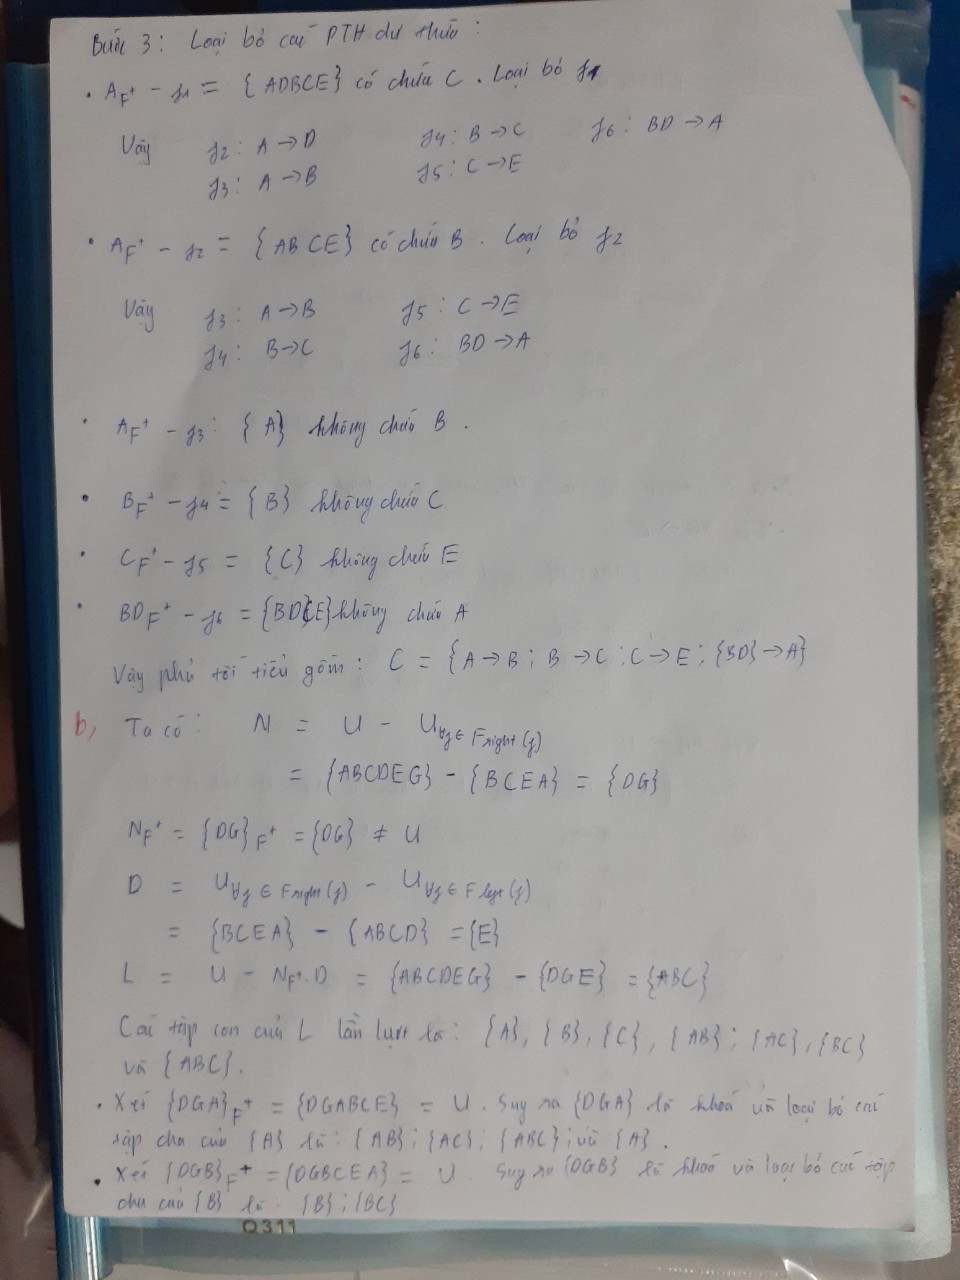 Bước 3: Loại bỏ các PTH dư thừa:
• A_F⁺ - f1 = {ADBCE} có chứa C. Loại bỏ f1
Vậy f2: A → D f4: B → C f6: BD → A
f3: A → B f5: C → E
• A_F⁺ - f2 = {ABCE} có chứa B. Loại bỏ f2
Vậy f3: A → B f5: C → E
f4: B → C f6: BD → A
• A_F⁺ - f3: {A} không chứa B.
• B_F⁺ - f4 = {B} không chứa C
• C_F⁺ - f5 = {C} không chứa E
• BD_F⁺ - f6 = {BDCE} không chứa A
Vậy phủ tối tiểu gồm: C = {A → B; B → C; C → E; {BD} → A}
b, Ta có: N = U - U∀f ∈ F right (f)
= {ABCDEG} - {BCEA} = {DG}
N_F⁺ = {DG}_F⁺ = {DG} ≠ U
D = U∀f ∈ F right (f) - U∀f ∈ F left (f)
= {BCEA} - {ABCD} = {E}
L = U - N_F⁺.D = {ABCDEG} - {DGE} = {ABC}
Các tập con của L lần lượt là: {A}, {B}, {C}, {AB}; {AC}, {BC}
và {ABC}.
• Xét {DGA}_F⁺ = {DGABCE} = U. Suy ra {DGA} là khoá và loại bỏ các
tập cha của {A} là: {AB}; {AC}; {ABC}; và {A}.
• Xét {DGB}_F⁺ = {DGBCEA} = U. Suy ra {DGB} là khoá và loại bỏ các tập
cha của {B} là: {B}; {BC}
Q311